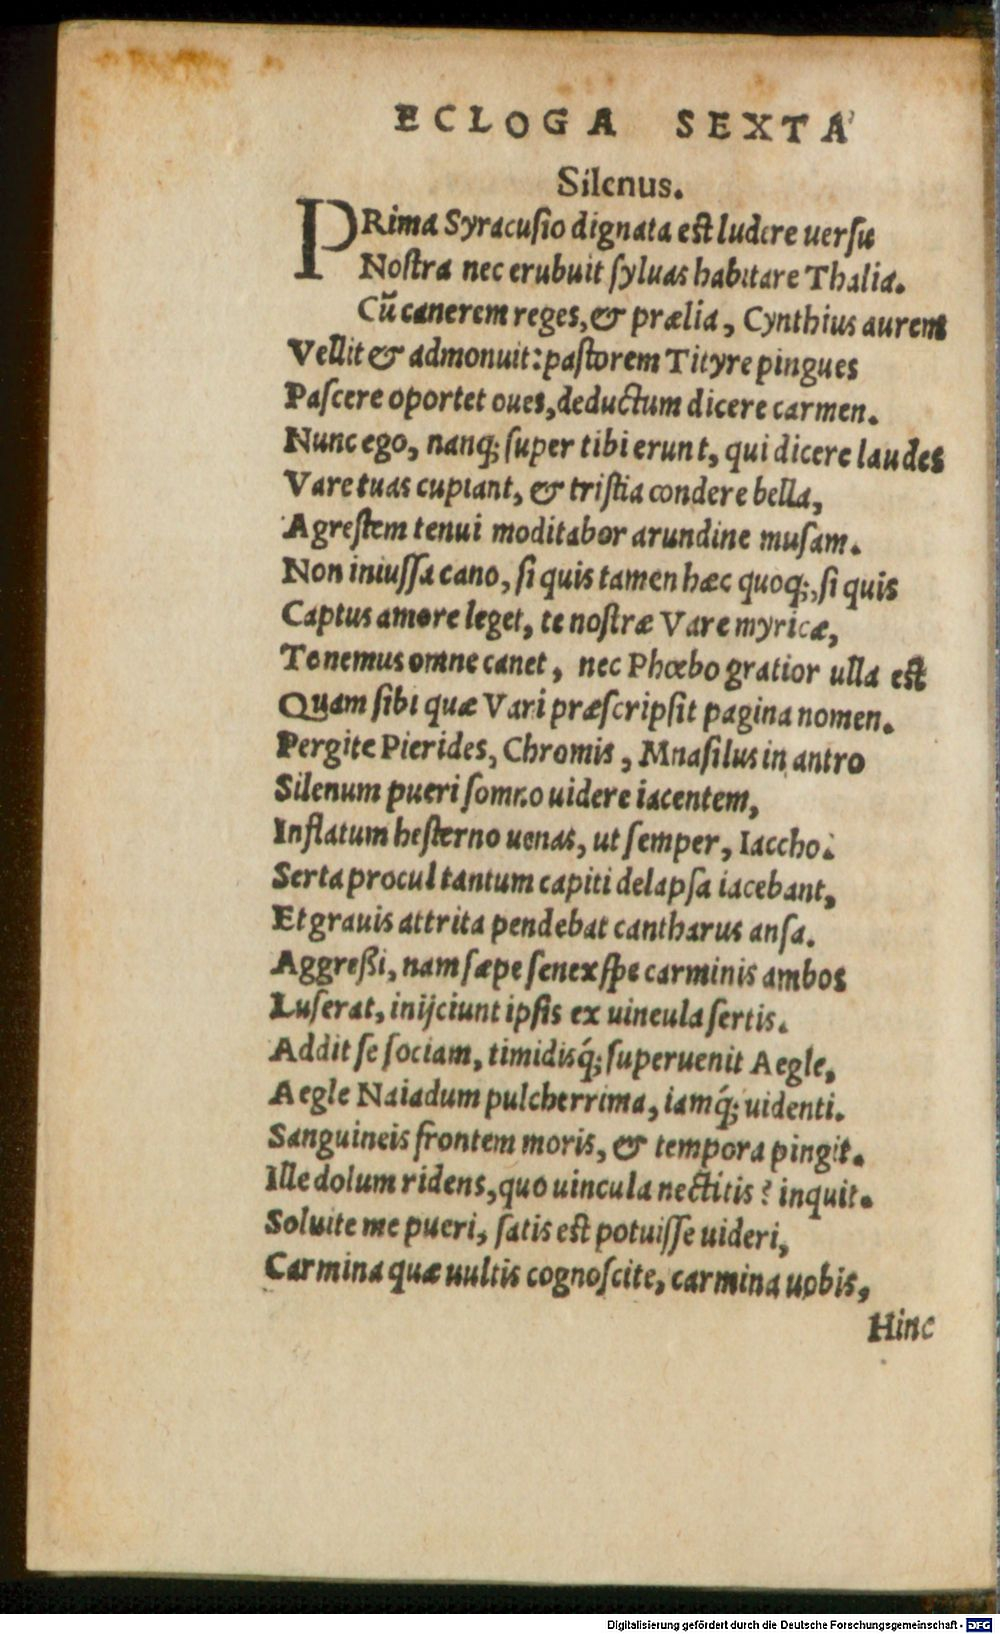 ECLOGA SEXTA
Silenus.
PRima Syracusio dignata est ludere uersu
Nostra nec erubuit syluas habitare Thalia.
Cũ canerem reges, & prælia, Cynthius aurem
Vellit & admonuit: pastorem Tityre pingues
Pascere oportet oues, deductum dicere carmen.
Nunc ego, nanq; super tibi erunt, qui dicere laudes
Vare tuas cupiant, & tristia condere bella,
Agrestem tenui moditabor arundine musam.
Non iniussa cano, si quis tamen hæc quoq;, si quis
Captus amore leget, te nostræ Vare myricæ,
Te nemus omne canet, nec Phœbo gratior ulla est
Quam sibi quæ Vari præscripsit pagina nomen.
Pergite Pierides, Chromis, Mnasilus in antro
Silenum pueri somno uidere iacentem,
Inflatum hesterno uenas, ut semper, Iaccho:
Serta procul tantum capiti delapsa iacebant,
Et grauis attrita pendebat cantharus ansa.
Aggreßi, nam sæpe senex spe carminis ambos
Luserat, inijciunt ipsis ex uincula sertis.
Addit se sociam, timidisq́; superuenit Aegle,
Aegle Naiadum pulcherrima, iamq́; uidenti.
Sanguineis frontem moris, & tempora pingit.
Ille dolum ridens, quo uincula nectitis? inquit.
Soluite me pueri, satis est potuisse uideri,
Carmina quæ uultis cognoscite, carmina uobis,
Hinc
Digitalisierung gefördert durch die Deutsche Forschungsgemeinschaft - DFG